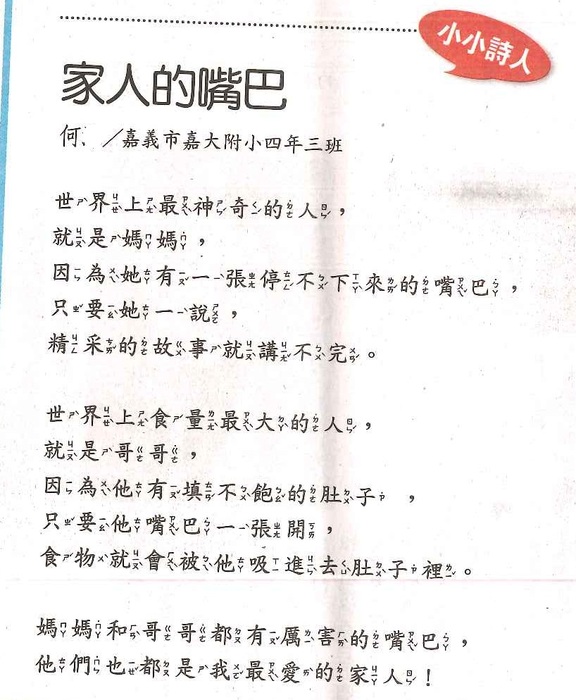 小小詩人
家人的嘴巴
何、／嘉義市嘉大附小四年三班
世界上最神奇的人，
就是媽媽，
因為她有一張停不下來的嘴巴，
只要她一說，
精采的故事就講不完。
世界上食量最大的人，
就是哥哥，
因為他有填不飽的肚子，
只要他嘴巴一張開，
食物就會被他吸進去肚子裡。
媽媽和哥哥都有厲害的嘴巴，
他們也都是我最愛的家人！